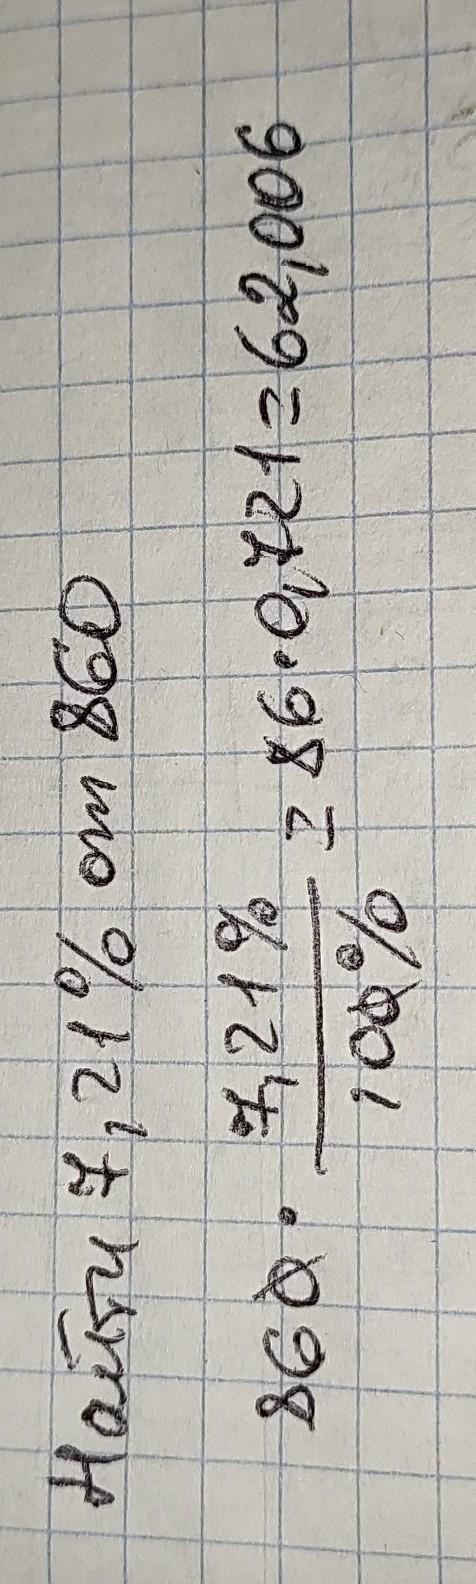 Найти 7,21% от 860
860 · 7,21% / 100% = 86 · 0,721 = 62,006